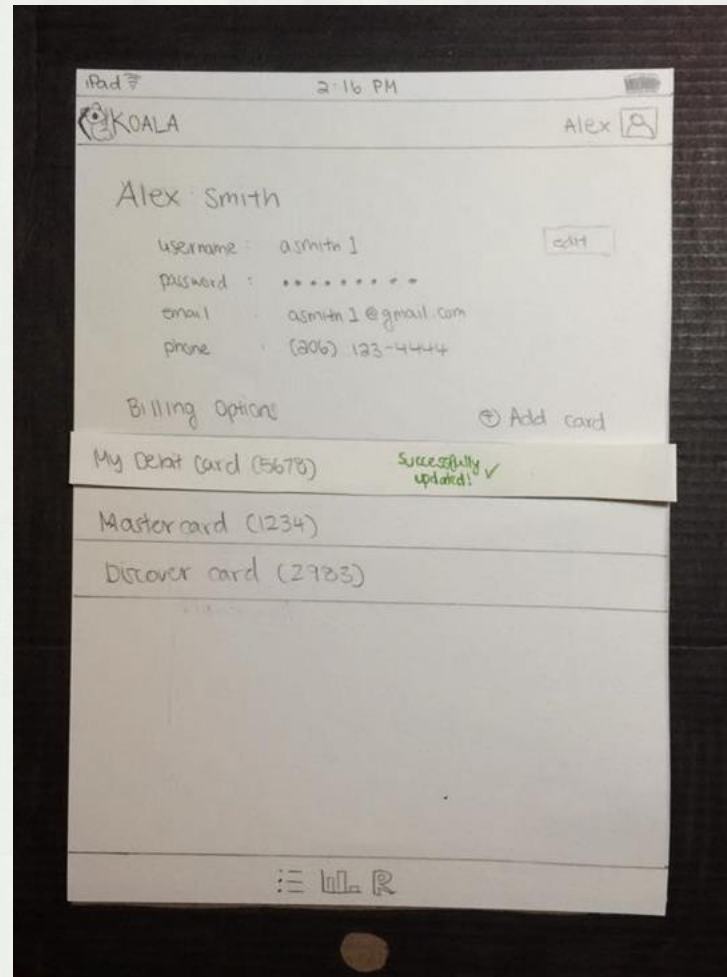 iPad 2:16 PM
KOALA Alex
Alex Smith
username : asmith1 edit
password : •••••••••
email : asmith1@gmail.com
phone : (206) 123-4444
Billing Options + Add card
My Debit Card (5678) Successfully updated! ✓
Mastercard (1234)
Discover card (2983)
R